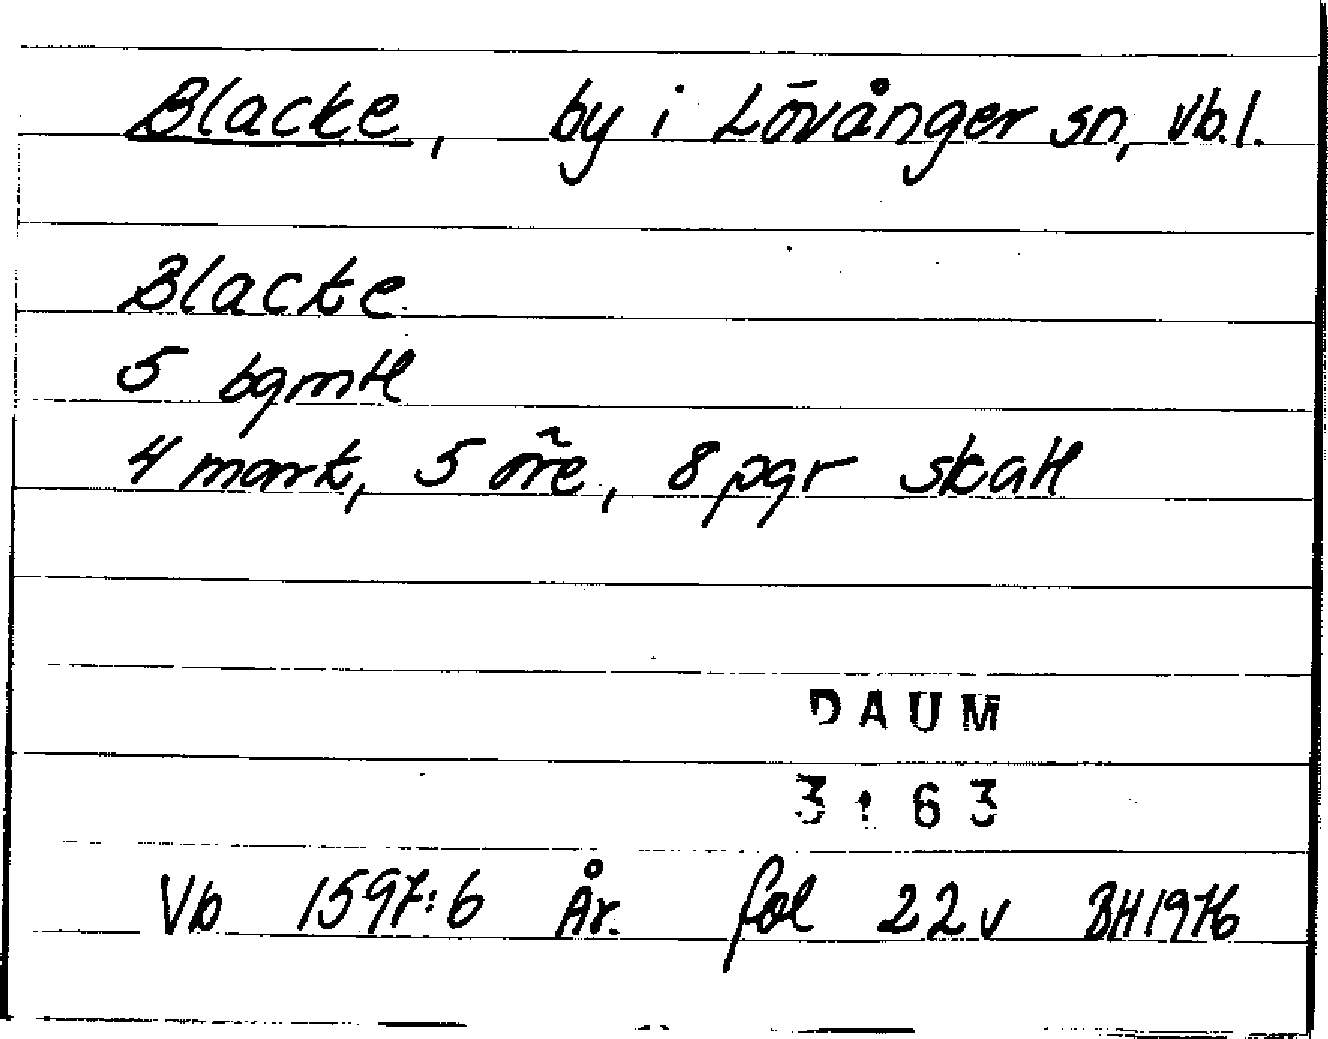 Blacke, by i Lövånger sn, Vb.l.
Blacke
5 bgmtl
4 mark, 5 öre, 8 pgr skatt
DAUM
3:63
Vb 1597:6 År. fol 22v BH 1976